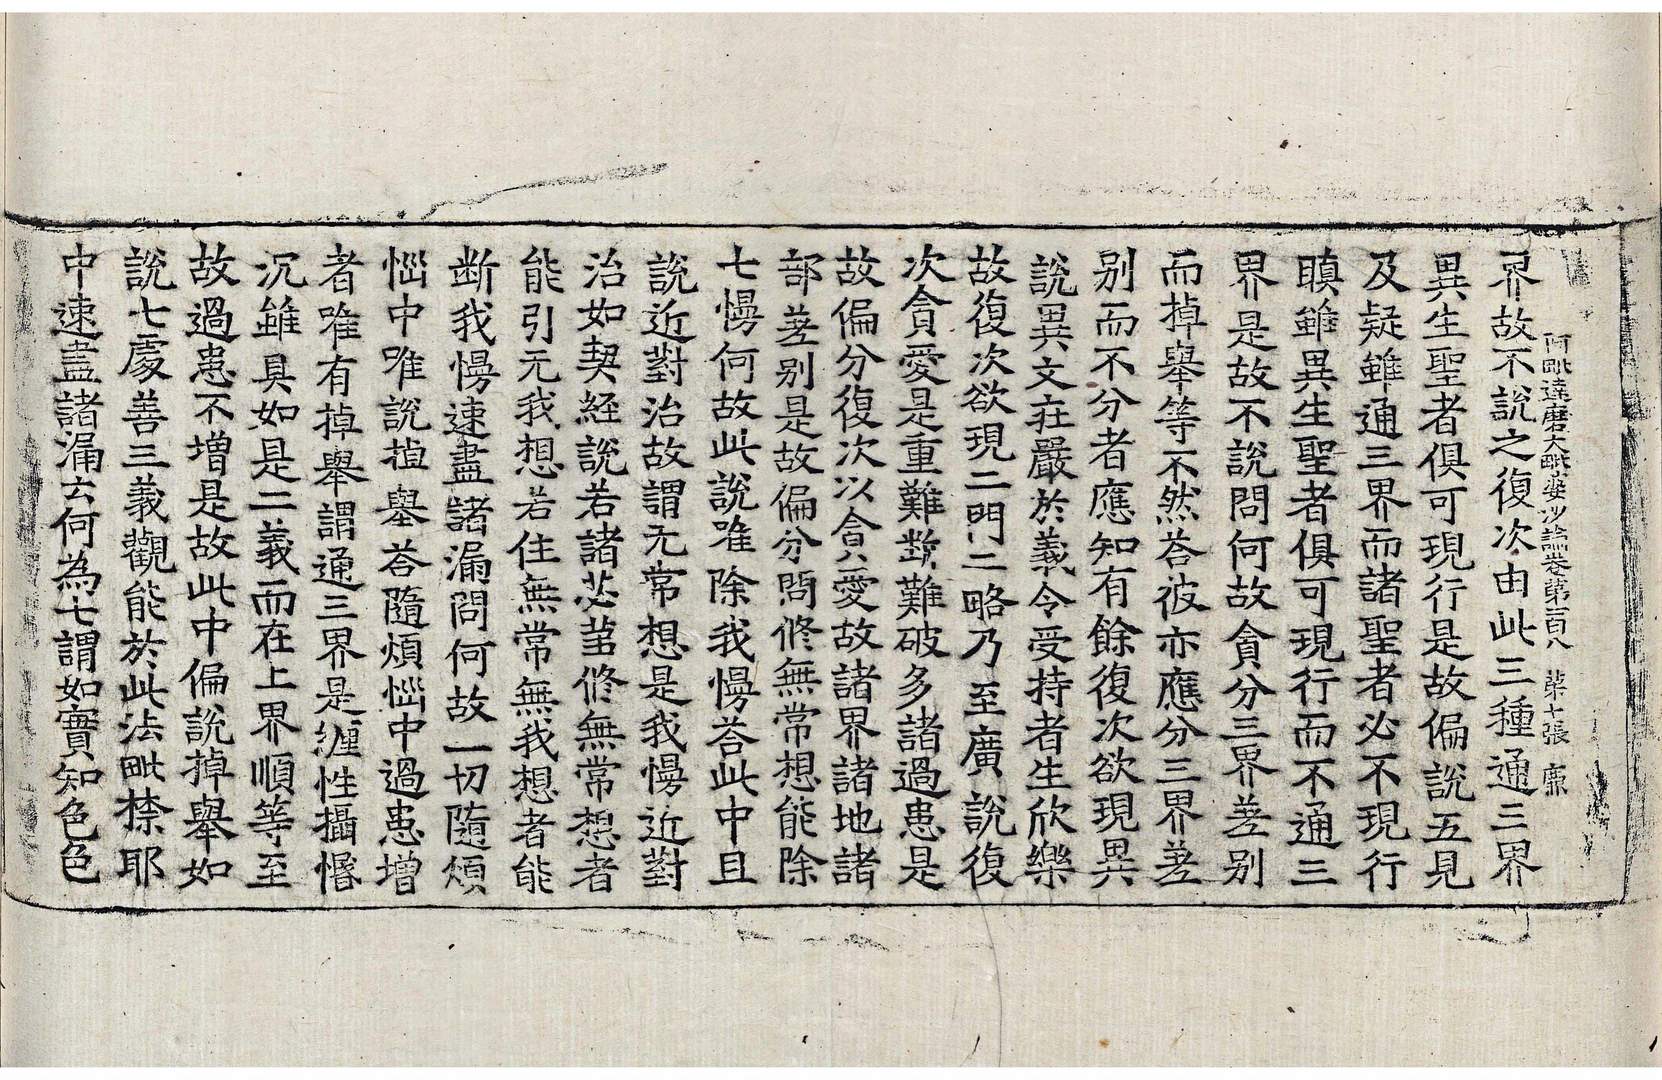 阿毗達磨大毗婆沙論卷第一百八　第七張　廉
界故不說之復次由此三種通三界
異生聖者俱可現行是故偏說五見
及疑雖通三界而諸聖者必不現行
瞋雖異生聖者俱可現行而不通三
界是故不說問何故貪分三界差別
而掉舉等不然荅彼亦應分三界差
別而不分者應知有餘復次欲現異
說異文莊嚴於義令受持者生欣樂
故復次欲現二門二略乃至廣說復
次貪愛是重難斷難破多諸過患是
故偏分復次以貪愛故諸界諸地諸
部差別是故偏分問修無常想能除
七慢何故此說唯除我慢荅此中且
說近對治故謂无常想是我慢近對
治如契經說若諸苾芻修無常想者
能引无我想若住無常無我想者能
斷我慢速盡諸漏問何故一切隨煩
惱中唯說掉舉荅隨煩惱中過患增
者唯有掉舉謂通三界是纏性攝惛
沉雖具如是二義而在上界順等至
故過患不增是故此中偏說掉舉如
說七處善三義觀能於此法毗柰耶
中速盡諸漏云何為七謂如實知色色